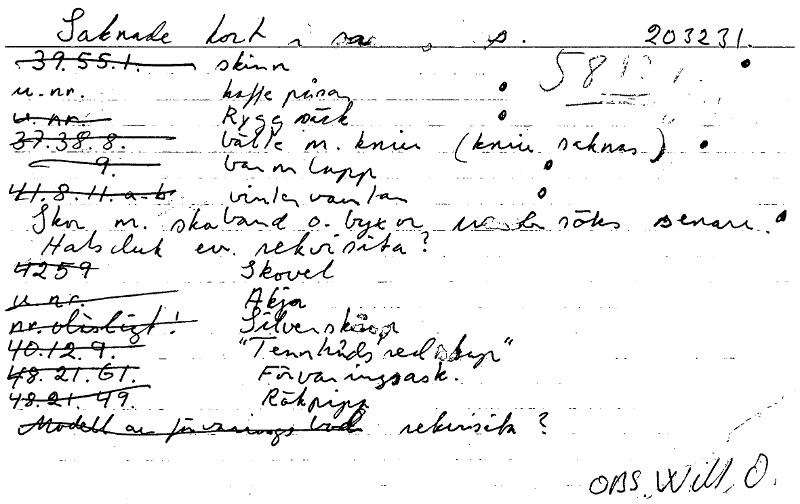 Saknade kort i sa 203231.
39.55.1. skinn 58
u.nr. kaffepåsar
u.nr. Ryggsäck
37.38.8. bälte m. kniv (kniv saknas)
9. barmlapp
41.8.11.a-b vintervantar
Skor m. skaband o. byxor söks senare.
Halsduk ev. rekvisita?
4259 Skovel
u.nr. Akja
nr. otisligt! Silverskåp
40.12.9. "Tennkåds redskap"
48.21.61. Förvaringsask.
48.21.49. Rökpipa
Modell av förvaringsbod rekvisita?
OBS. Will. O.